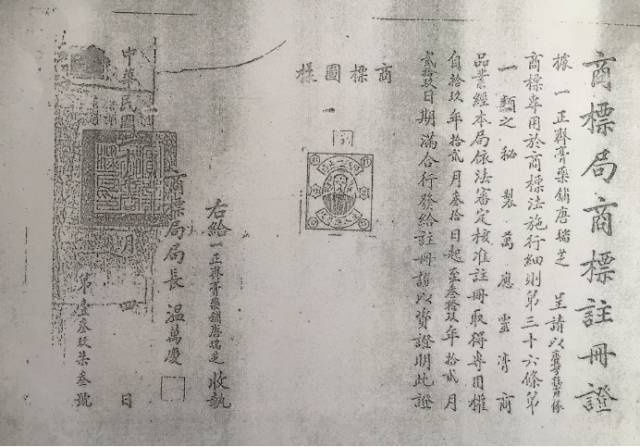 商標局商標註冊證
據一正膏藥鋪唐瑞芝呈請以
商標專用於商標法施行細則第三十六條第
一類之秘製萬應靈膏商
品業經本局依法審定核准註冊取得專用權
自拾玖年拾貳月叁拾日起至叁拾玖年拾貳月
貳拾玖日期滿合行發給註冊證以資證明此證
商標圖樣
右給一正膏藥鋪唐瑞芝收執
商標局局長溫萬慶
中華民國
月四日
第壹叁玖柒叁號